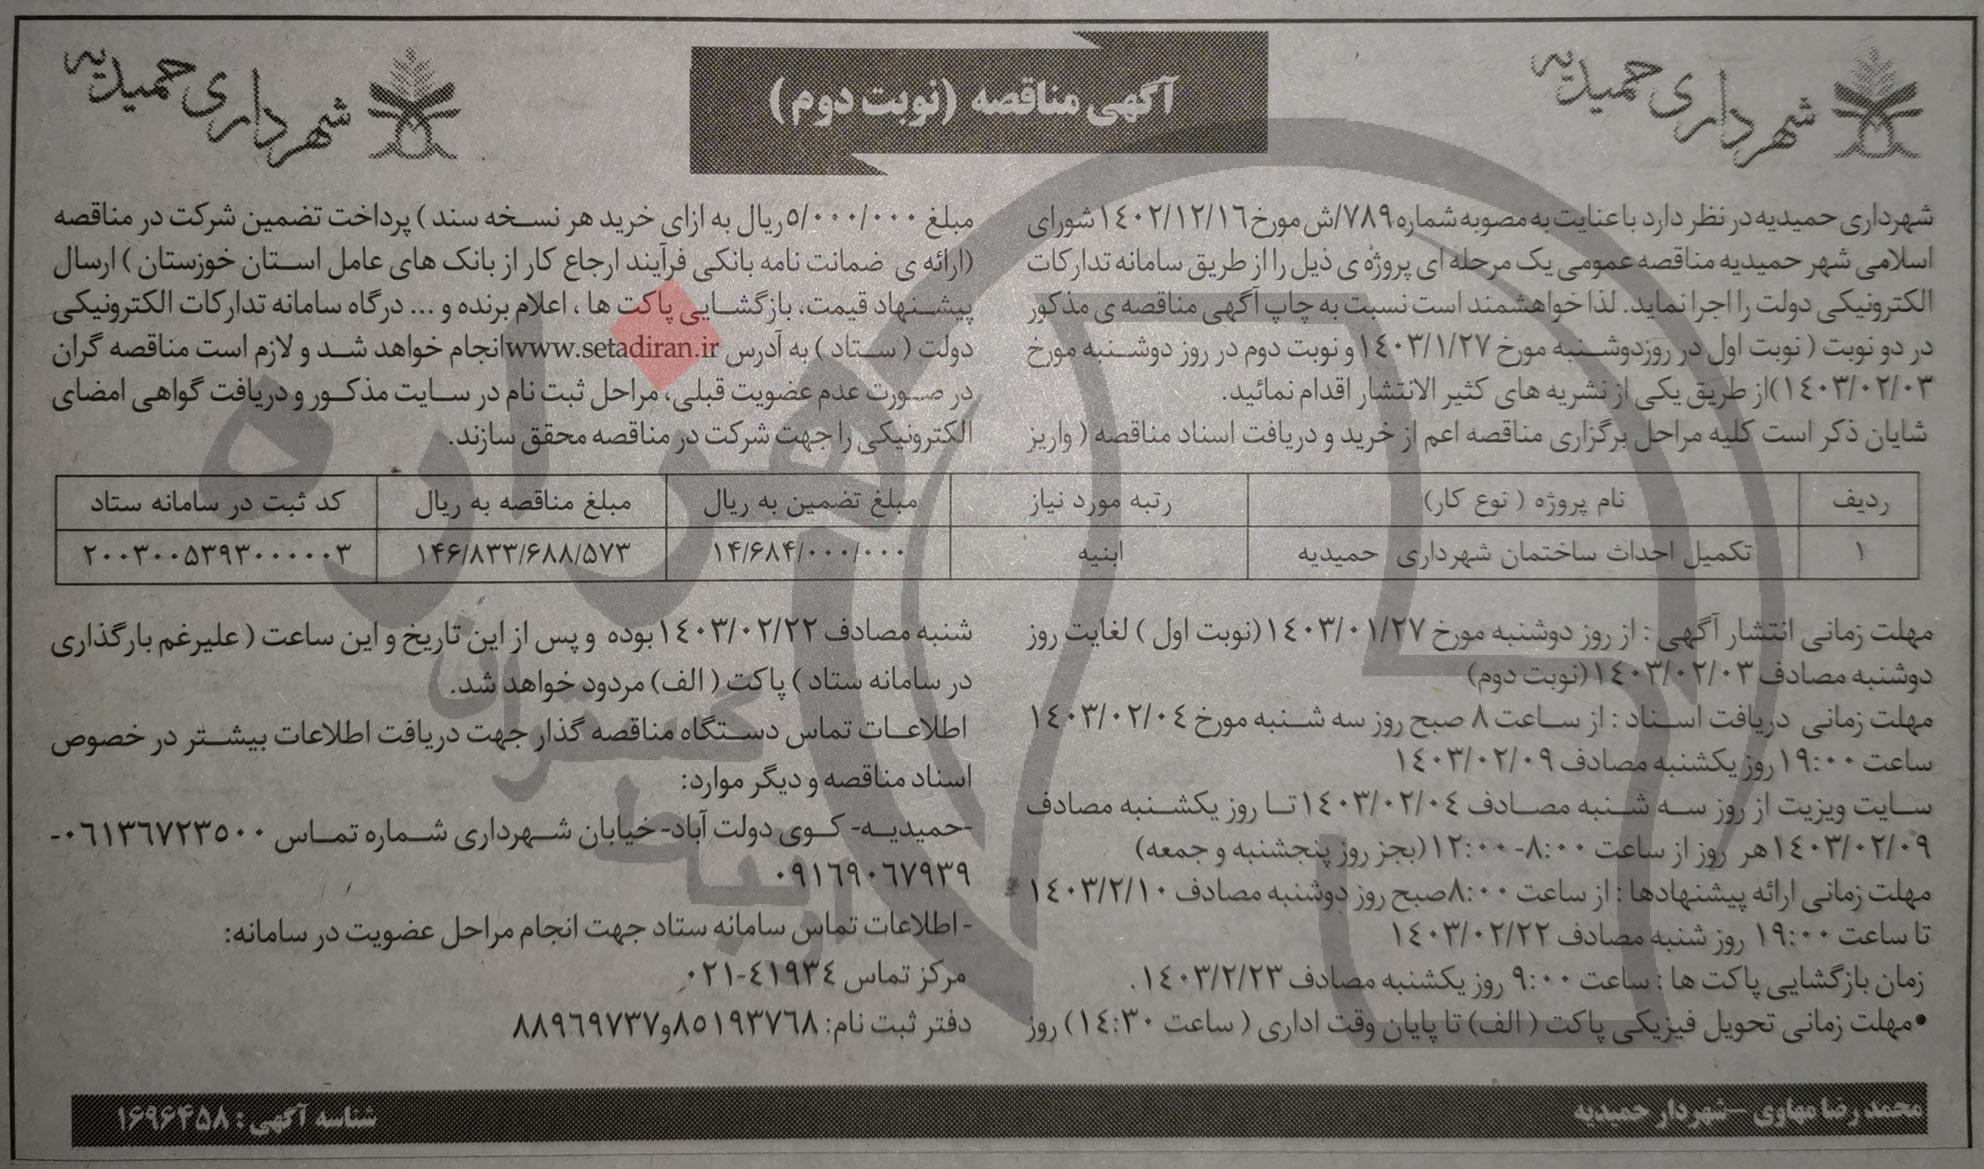 شهرداری حمیدیه
آگهی مناقصه (نوبت دوم)
شهرداری حمیدیه
شهرداری حمیدیه در نظر دارد با عنایت به مصوبه شماره ۷۸۹/ش مورخ ۱۴۰۲/۱۲/۱۶ شورای
اسلامی شهر حمیدیه مناقصه عمومی یک مرحله ای پروژه ی ذیل را از طریق سامانه تدارکات
الکترونیکی دولت را اجرا نماید. لذا خواهشمند است نسبت به چاپ آگهی مناقصه ی مذکور
در دو نوبت ( نوبت اول در روزدوشنبه مورخ ۱۴۰۳/۱/۲۷ و نوبت دوم در روز دوشنبه مورخ
۱۴۰۳/۰۲/۰۳)از طریق یکی از نشریه های کثیر الانتشار اقدام نمائید.
شایان ذکر است کلیه مراحل برگزاری مناقصه اعم از خرید و دریافت اسناد مناقصه ( واریز
مبلغ ۵/۰۰۰/۰۰۰ریال به ازای خرید هر نسخه سند ) پرداخت تضمین شرکت در مناقصه
(ارائه ی ضمانت نامه بانکی فرآیند ارجاع کار از بانک های عامل استان خوزستان ) ارسال
پیشنهاد قیمت، بازگشایی پاکت ها ، اعلام برنده و ... درگاه سامانه تدارکات الکترونیکی
دولت ( ستاد ) به آدرس www.setadiran.irانجام خواهد شد و لازم است مناقصه گران
در صورت عدم عضویت قبلی، مراحل ثبت نام در سایت مذکور و دریافت گواهی امضای
الکترونیکی را جهت شرکت در مناقصه محقق سازند.
ردیف نام پروژه ( نوع کار) رتبه مورد نیاز مبلغ تضمین به ریال مبلغ مناقصه به ریال کد ثبت در سامانه ستاد
۱ تکمیل احداث ساختمان شهرداری حمیدیه ابنیه ۱۴/۶۸۴/۰۰۰/۰۰۰ ۱۴۶/۸۳۳/۶۸۸/۵۷۳ ۲۰۰۳۰۰۵۳۹۳۰۰۰۰۰۳
مهلت زمانی انتشار آگهی : از روز دوشنبه مورخ ۱۴۰۳/۰۱/۲۷(نوبت اول ) لغایت روز
دوشنبه مصادف ۱۴۰۳/۰۲/۰۳(نوبت دوم)
مهلت زمانی دریافت اسناد : از ساعت ۸ صبح روز سه شنبه مورخ ۱۴۰۳/۰۲/۰۴
ساعت ۱۹:۰۰ روز یکشنبه مصادف ۱۴۰۳/۰۲/۰۹
سایت ویزیت از روز سه شنبه مصادف ۱۴۰۳/۰۲/۰۴تا روز یکشنبه مصادف
۱۴۰۳/۰۲/۰۹هر روز از ساعت ۸:۰۰-۱۲:۰۰(بجز روز پنجشنبه و جمعه)
مهلت زمانی ارائه پیشنهادها : از ساعت ۸:۰۰صبح روز دوشنبه مصادف ۱۴۰۳/۲/۱۰
تا ساعت ۱۹:۰۰ روز شنبه مصادف ۱۴۰۳/۰۲/۲۲
زمان بازگشایی پاکت ها : ساعت ۹:۰۰ روز یکشنبه مصادف ۱۴۰۳/۲/۲۳ .
•مهلت زمانی تحویل فیزیکی پاکت ( الف) تا پایان وقت اداری ( ساعت ۱۴:۳۰) روز
شنبه مصادف ۱۴۰۳/۰۲/۲۲بوده و پس از این تاریخ و این ساعت ( علیرغم بارگذاری
در سامانه ستاد ) پاکت ( الف) مردود خواهد شد.
اطلاعات تماس دستگاه مناقصه گذار جهت دریافت اطلاعات بیشتر در خصوص
اسناد مناقصه و دیگر موارد:
-حمیدیه- کوی دولت آباد- خیابان شهرداری شماره تماس ۰۶۱۳۶۷۲۳۵۰۰-
۰۹۱۶۹۰۶۷۹۳۹
- اطلاعات تماس سامانه ستاد جهت انجام مراحل عضویت در سامانه:
مرکز تماس ۴۱۹۳۴-۰۲۱
دفتر ثبت نام: ۸۵۱۹۳۷۶۸و۸۸۹۶۹۷۳۷
محمد رضا مهاوی –شهردار حمیدیه
شناسه آگهی : ۱۶۹۶۴۵۸
هزاره
گستران